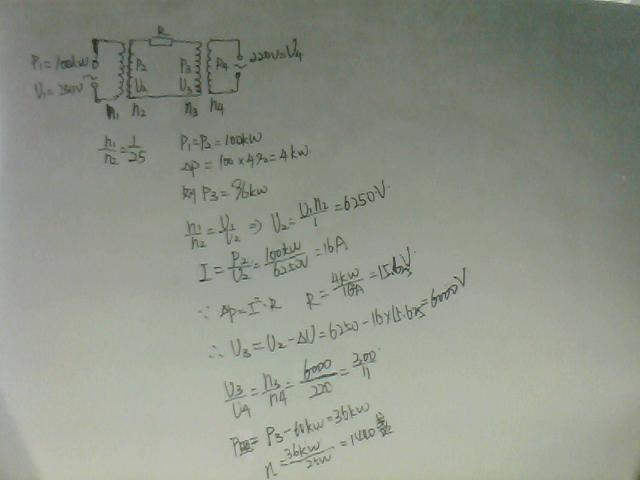 R
P₁=100kw
P₂
P₃
P₄
220V=U₄
U₁=250V
U₂
U₃
n₁ n₂ n₃ n₄
n₁/n₂=1/25
P₁=P₂=100kw
ΔP=100×4%=4kw.
则P₃=96kw
n₁/n₂=U₁/U₂ ⇒ U₂=U₁n₂/1=6250V.
I=P₂/U₂=100kw/6250V=16A
∵ ΔP=I²·R R=4kw/16A=15.625V.
∴ U₃=U₂-ΔU=6250-16×15.625=6000V
U₃/U₄=n₃/n₄=6000/220=300/11.
=P₃-60kw=36kw
n=36kw/25w=1440盏